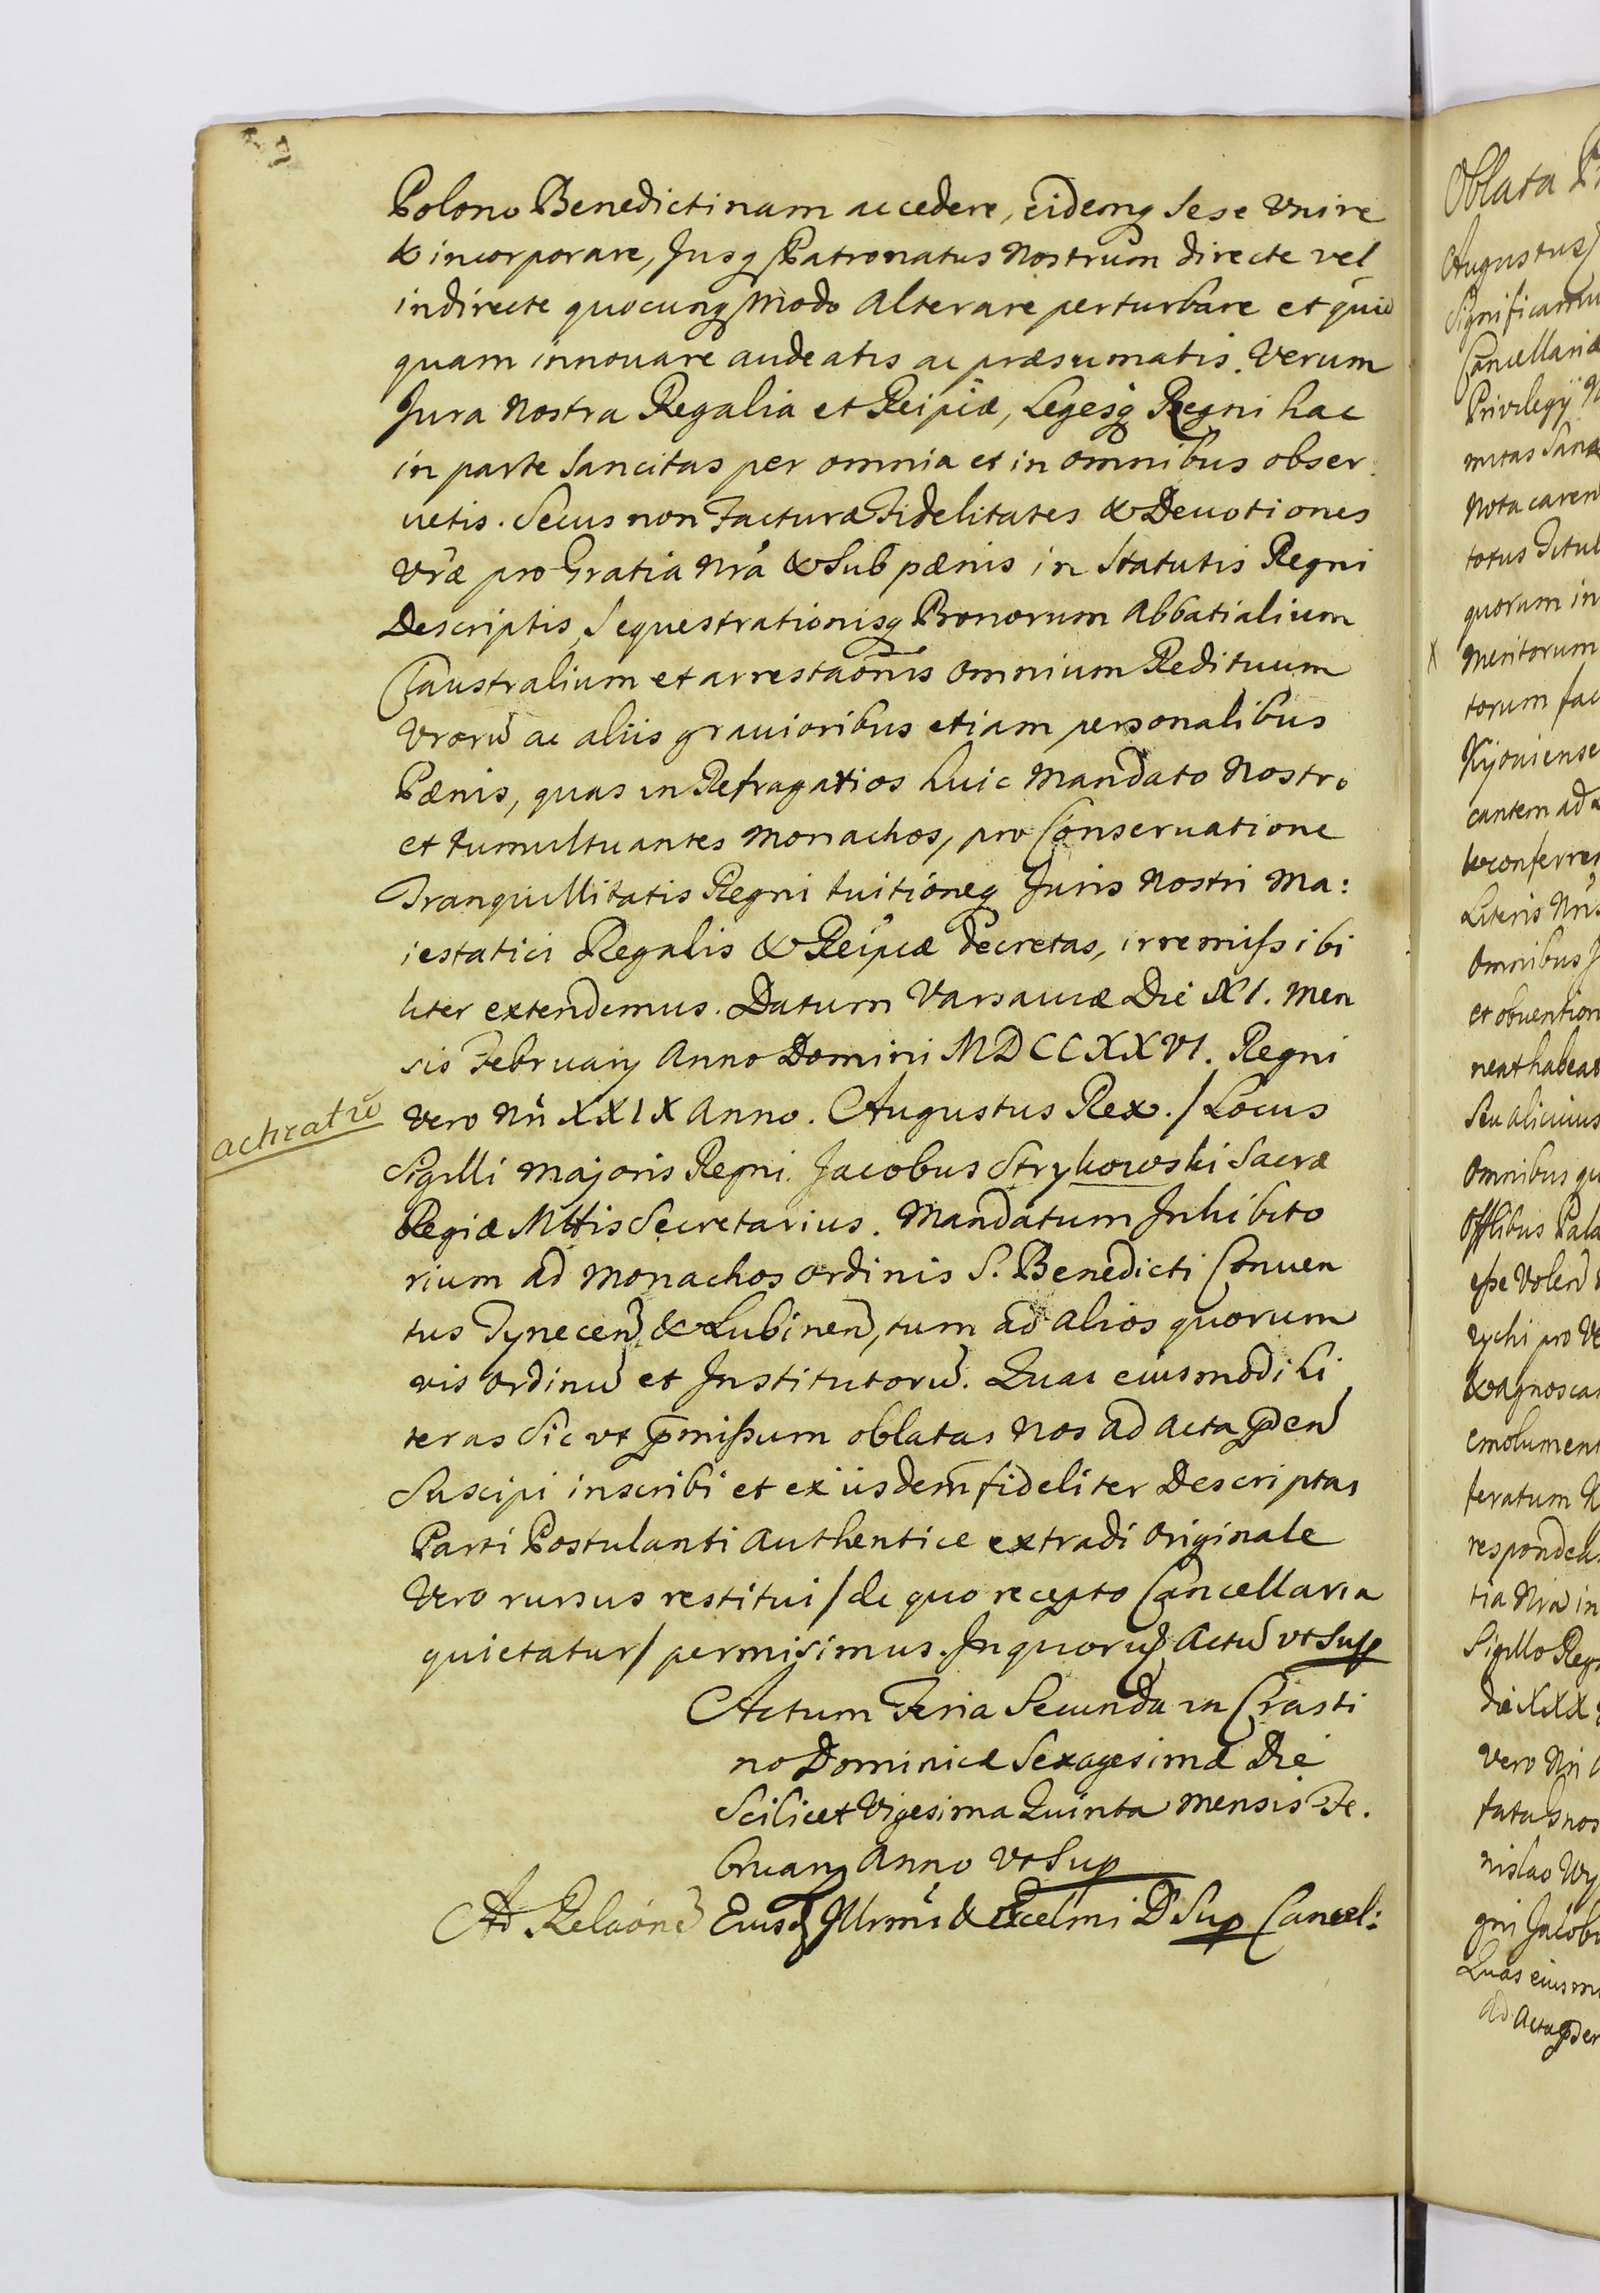 Polono Benedictinam accedere, eidemq Sese Vnire
& incorporare, Jusq Patronatus Nostrum directe vel
indirecte quocunq Modo Alterare perturbare et quid
quam innouare audeatis ac præsumatis. Verum
Jura Nostra Regalia et Reipcæ, Legesq Regni hac
in parte Sancitas per omnia et in omnibus obser
uetis. Secus non Facturæ Fidelitates & Deuotiones
Vræ pro Gratia Nra & Sub pænis in Statutis Regni
Descriptis, Sequestrationisq Bonorum Abbatialium
Claustralium et arrestaonis omnium Redituum
Vrorũ ac aliis grauioribus etiam personalibus
Pænis, quas in Refragatios huic Mandato Nostro
et tumultuantes Monachos, pro Conseruatione
Tranquillitatis Regni tuitioneq Juris Nostri Ma:
iestatici Regalis & Reipcæ decretas, irremissibi
liter extendemus. Datum Varsauiæ Die XI. Men
sis February Anno Domini MDCCXXVI. Regni
acticatũ
Vero Nri XXIX Anno. Augustus Rex. / Locus
Sigilli Majoris Regni. Jacobus Strykowski Sacræ
Regiæ Mttis Secretarius. Mandatum Inhibito
rium ad Monachos ordinis S. Benedicti Conuen
tus Tynecen, & Lubinen, tum ad alios quorum
vis ordinũ et Institutorũ. Quas eiusmodi li
teras Sic vt pmissum oblatas Nos ad Acta pden
Suscipi inscribi et ex iisdem fideliter Descriptas
Parti Postulanti Authentice extradi originale
Vero rursus restitui / de quo recepto Cancellaria
quietatur / permisimus. In quorũ Actũ vt Sup
Actum Feria Secunda in Crasti
no Dominicæ Sexagesimæ Die
Scilicet Vigesima Quinta Mensis Fe.
bruary Anno Vt Sup
Ad Relaone Eiusd Illrmi & Excelmi D Sup Cancel:
Oblata
Augustus
Significamu
Cancellariæ
Privilegÿ N
mitas Sana
Nota caren
totus Titul
quorum in
x Meritorum
torum fac
Kijouiense
cantem ad
& conferren
Literis Nris
Omnibus
et obuention
neat habeat
Seu alicuius
Omnibus qu
Offlibus Pala
esse Volen
rychi pro Ve
& agnoscan
emolument
feratum N
respondeb
tia Nra in
Sigillo Regn
die XXX
Vero Nri
tatas nos
nislao Wy
gni Jacobu
Quas eiusmo
ad Acta pden